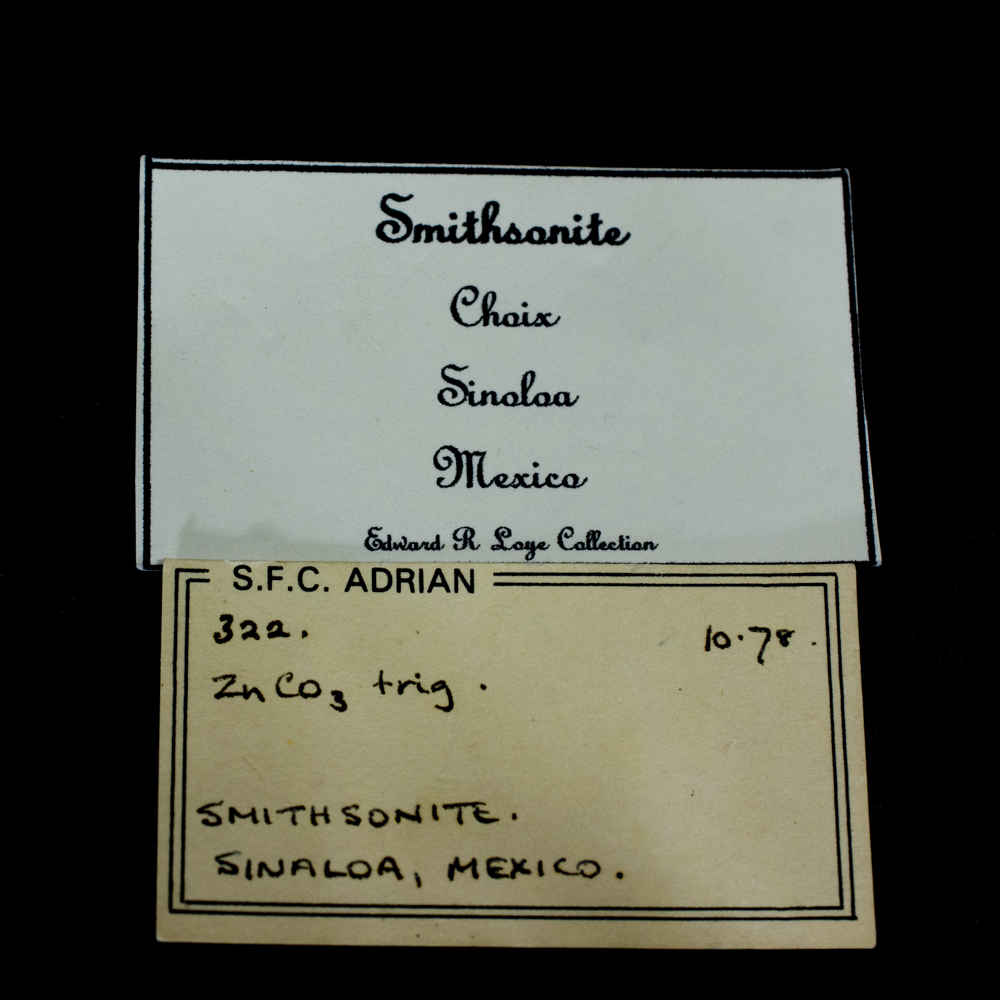 Smithsonite
Choix
Sinoloa
Mexico
Edward R Loye Collection
S.F.C. ADRIAN
322. 10.78.
ZnCO3 trig.
SMITHSONITE.
SINALOA, MEXICO.